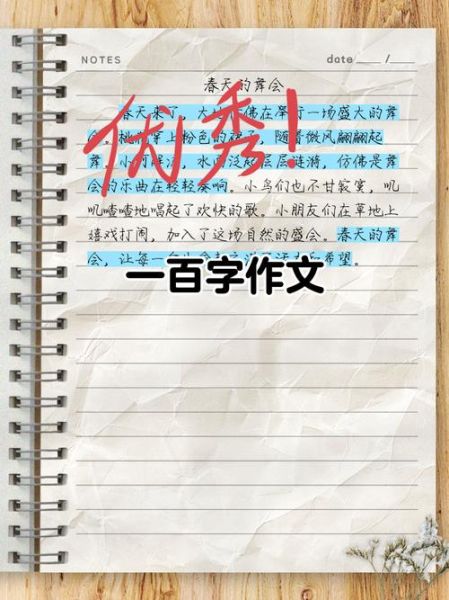 NOTES
date ____ / ____
春天的舞会
春天来了，大 仿佛在举行一场盛大的舞
会。桃 穿上粉色的 ，随着微风翩翩起
舞。小河 ，水面泛起层层涟漪，仿佛是舞
会的乐曲在轻轻奏响。小鸟们也不甘寂寞，叽
叽喳喳地唱起了欢快的歌。小朋友们在草地上
嬉戏打闹，加入了这场自然的盛会。春天的舞
会，让每一 希望。
优秀！
一百字作文